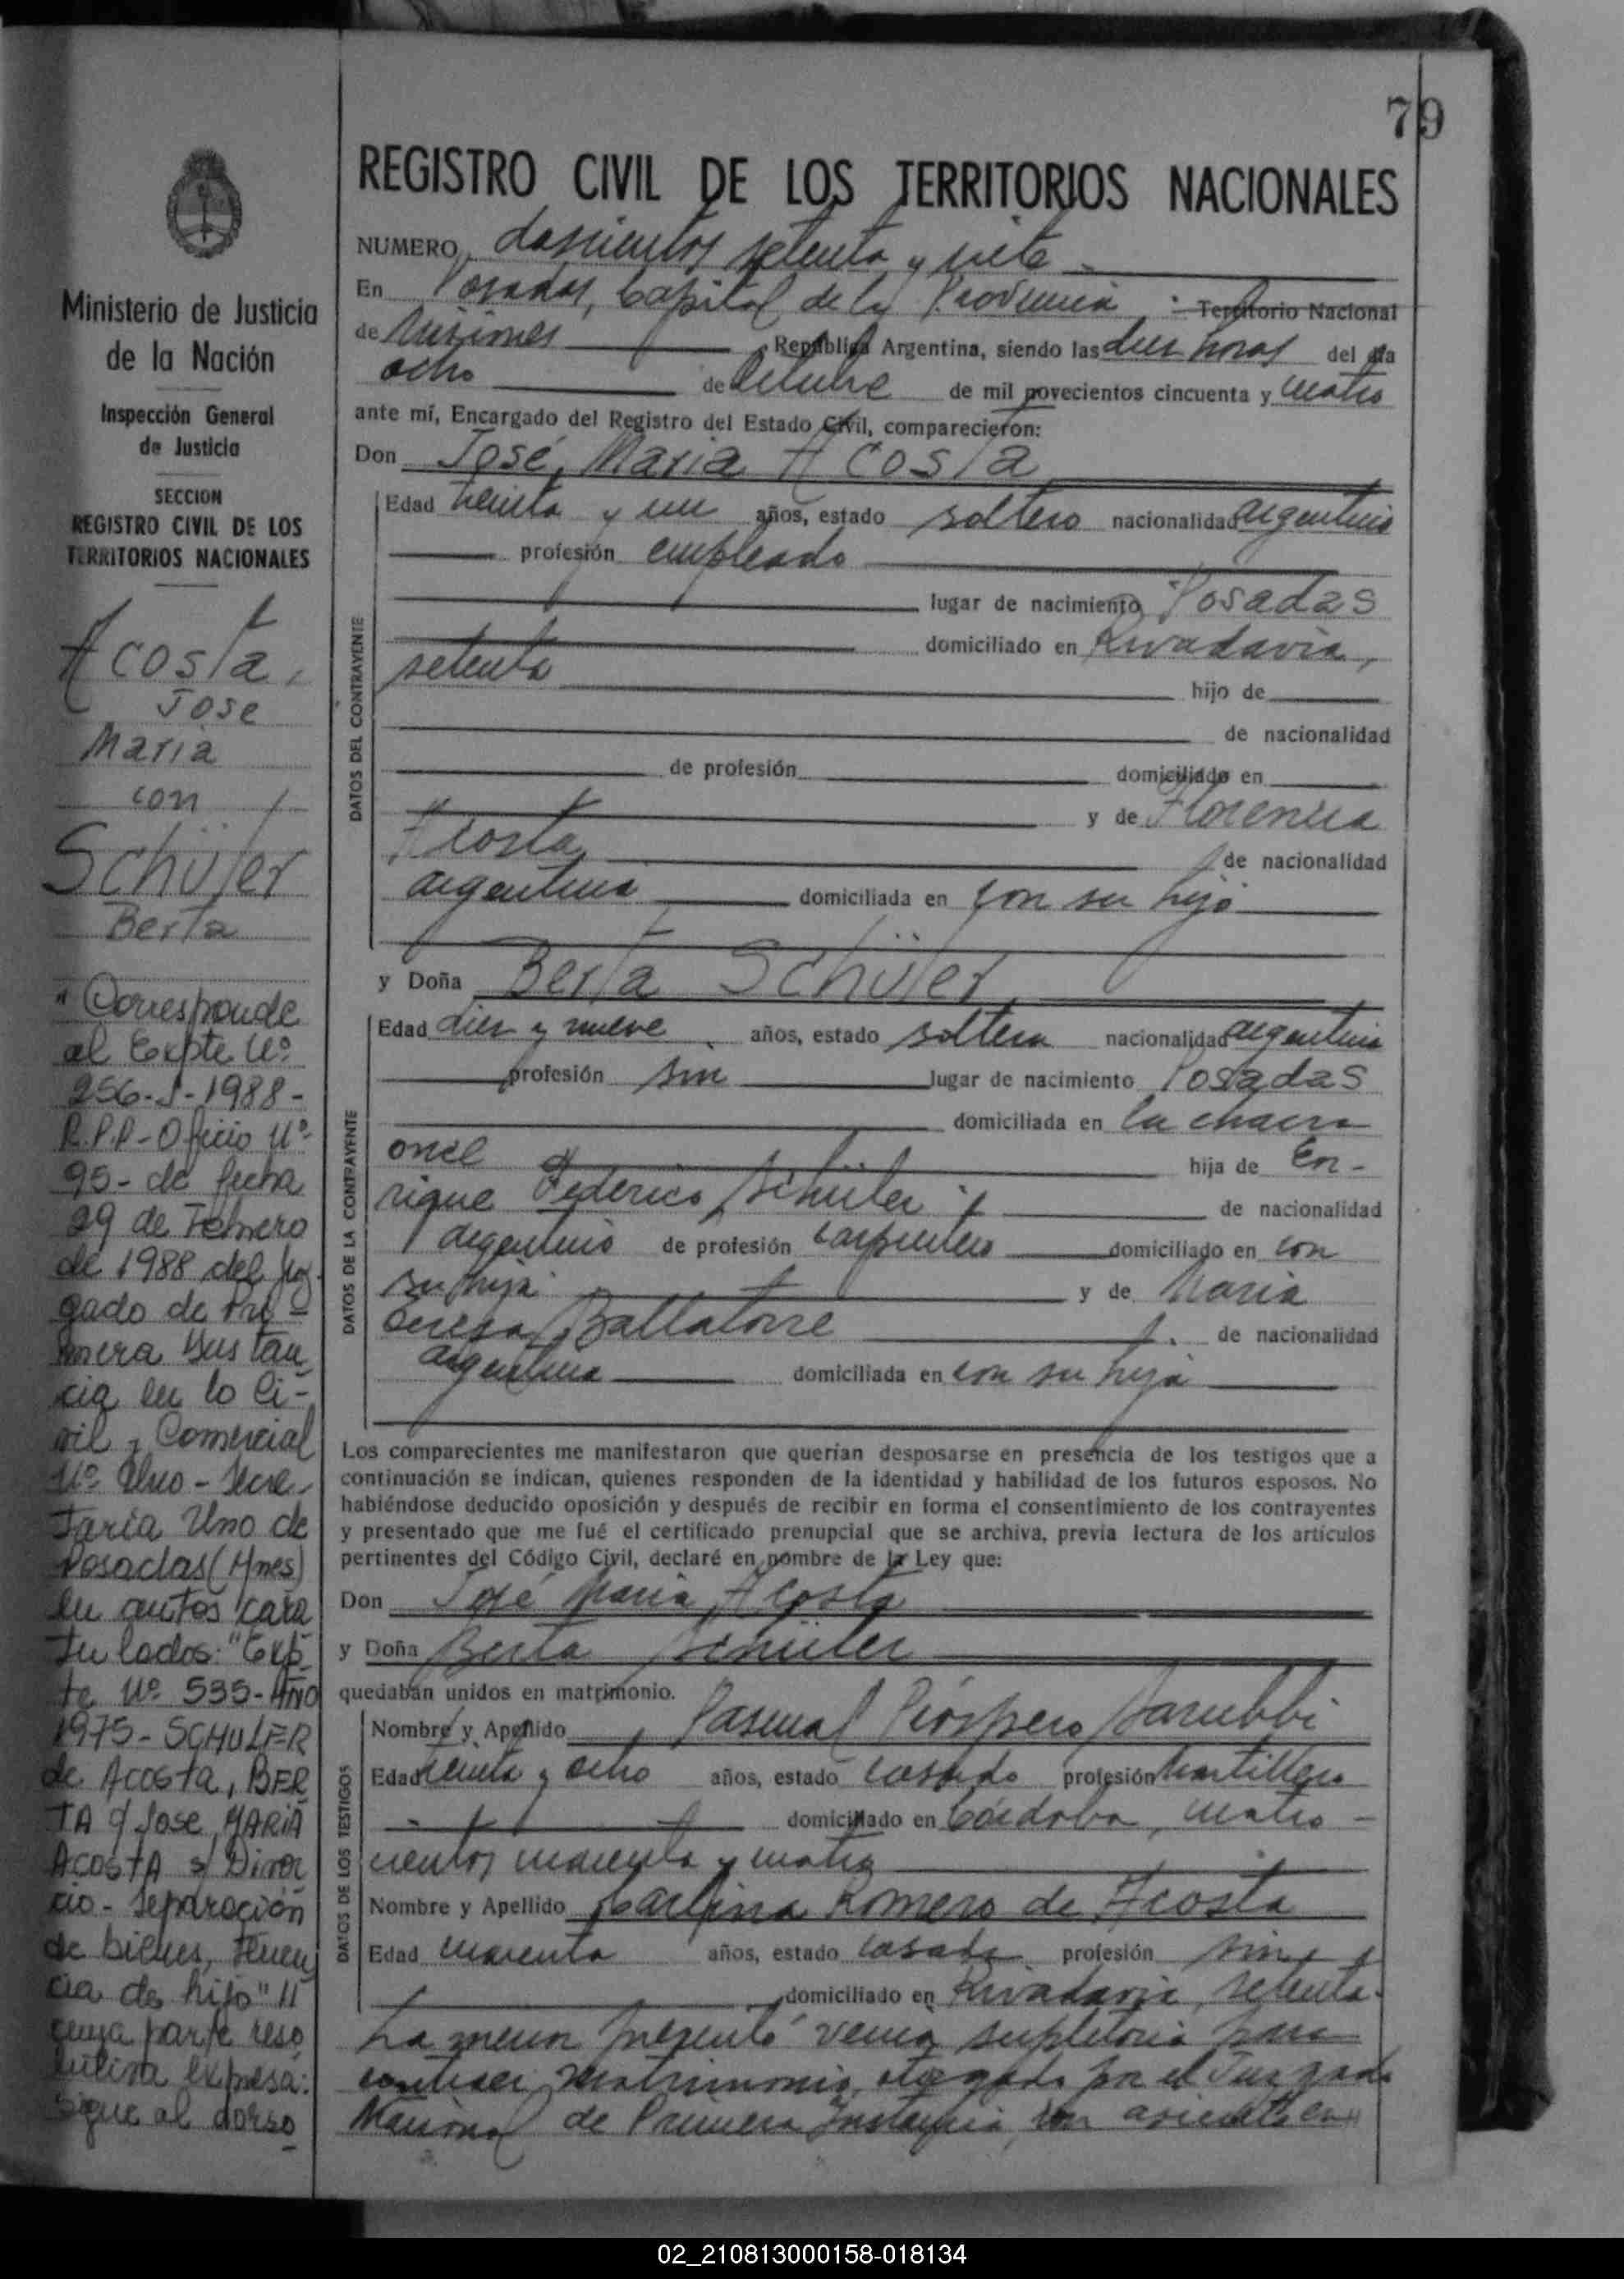 79
Ministerio de Justicia
de la Nación
Inspección General
de Justicia
SECCION
REGISTRO CIVIL DE LOS
TERRITORIOS NACIONALES
Acosta,
Jose
Maria
con
Schüler
Berta
"Corresponde
al Expte Nº
256-S-1988-
R.P.P-Oficio Nº
95- de fecha
29 de Febrero
de 1988 del Juz
gado de Pri-
mera Instan
cia en lo Ci-
vil y Comercial
Nº Uno - Secre-
taría Uno de
Posadas (Mnes)
en autos cara
tulados: "Exp
te Nº 535-AÑO
1975- SCHULER
de Acosta, BER
TA c/ Jose MARIA
ACOSTA s/ Divor
cio - Separación
de bienes, tenen
cia de hijo" //
cuya parte reso
lutiva expresa:
sigue al dorso
REGISTRO CIVIL DE LOS TERRITORIOS NACIONALES
NUMERO doscientos setenta y siete
En Posadas, Capital de la Provincia Territorio Nacional
de Misiones República Argentina, siendo las diez horas del día
ocho de Octubre de mil novecientos cincuenta y cuatro
ante mí, Encargado del Registro del Estado Civil, comparecieron:
Don José Maria Acosta
DATOS DEL CONTRAYENTE
Edad treinta y un años, estado soltero nacionalidad argentino
profesión empleado
lugar de nacimiento Posadas
domiciliado en Rivadavia,
setenta hijo de
de nacionalidad
de profesión domiciliado en
y de Florencia
Acosta de nacionalidad
argentina domiciliada en con su hijo
y Doña Berta Schüler
DATOS DE LA CONTRAYENTE
Edad diez y nueve años, estado soltera nacionalidad argentina
profesión sin lugar de nacimiento Posadas
domiciliada en la chacra
once hija de En-
rique Federico Schüler de nacionalidad
argentino de profesión carpintero domiciliado en con
su hija y de Maria
Teresa Ballatorre de nacionalidad
argentina domiciliada en con su hija
Los comparecientes me manifestaron que querían desposarse en presencia de los testigos que a
continuación se indican, quienes responden de la identidad y habilidad de los futuros esposos. No
habiéndose deducido oposición y después de recibir en forma el consentimiento de los contrayentes
y presentado que me fué el certificado prenupcial que se archiva, previa lectura de los artículos
pertinentes del Código Civil, declaré en nombre de la Ley que:
Don José Maria Acosta
y Doña Berta Schüler
quedaban unidos en matrimonio.
DATOS DE LOS TESTIGOS
Nombre y Apellido Pascual Próspero
Edad treinta y ocho años, estado casado profesión martillero
domiciliado en Córdoba, cuatro-
cientos cuarenta y cuatro
Nombre y Apellido Romero de Acosta
Edad cuarenta años, estado casada profesión sin
domiciliado en Rivadavia, setenta.
La menor presentó venia supletoria para
contraer matrimonio, otorgada por el Juzgado
Nacional de Primera Instancia, con asiento en
02_210813000158-018134